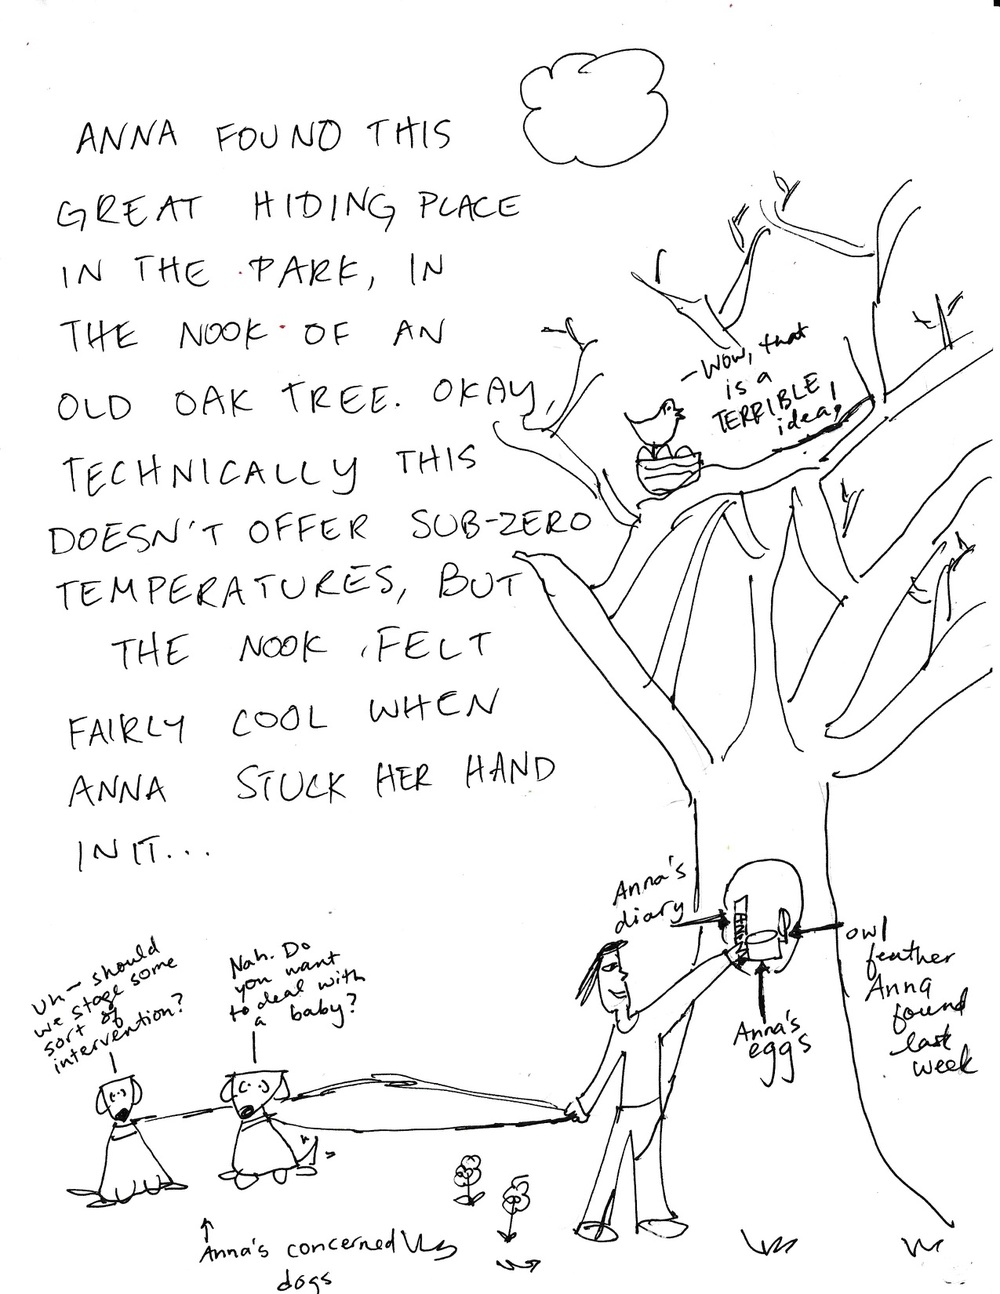 ANNA FOUND THIS
GREAT HIDING PLACE
IN THE PARK, IN
THE NOOK OF AN
OLD OAK TREE. OKAY,
TECHNICALLY THIS
DOESN'T OFFER SUB-ZERO
TEMPERATURES, BUT
THE NOOK FELT
FAIRLY COOL WHEN
ANNA STUCK HER HAND
IN IT...
- Wow, that
is a
TERRIBLE
idea!
Anna's
diary
ANNA
owl
feather
Anna
found
last
week
Anna's
eggs
Uh - should
we stage some
sort of
intervention?
Nah. Do
you want
to deal with
a baby?
Anna's concerned
dogs